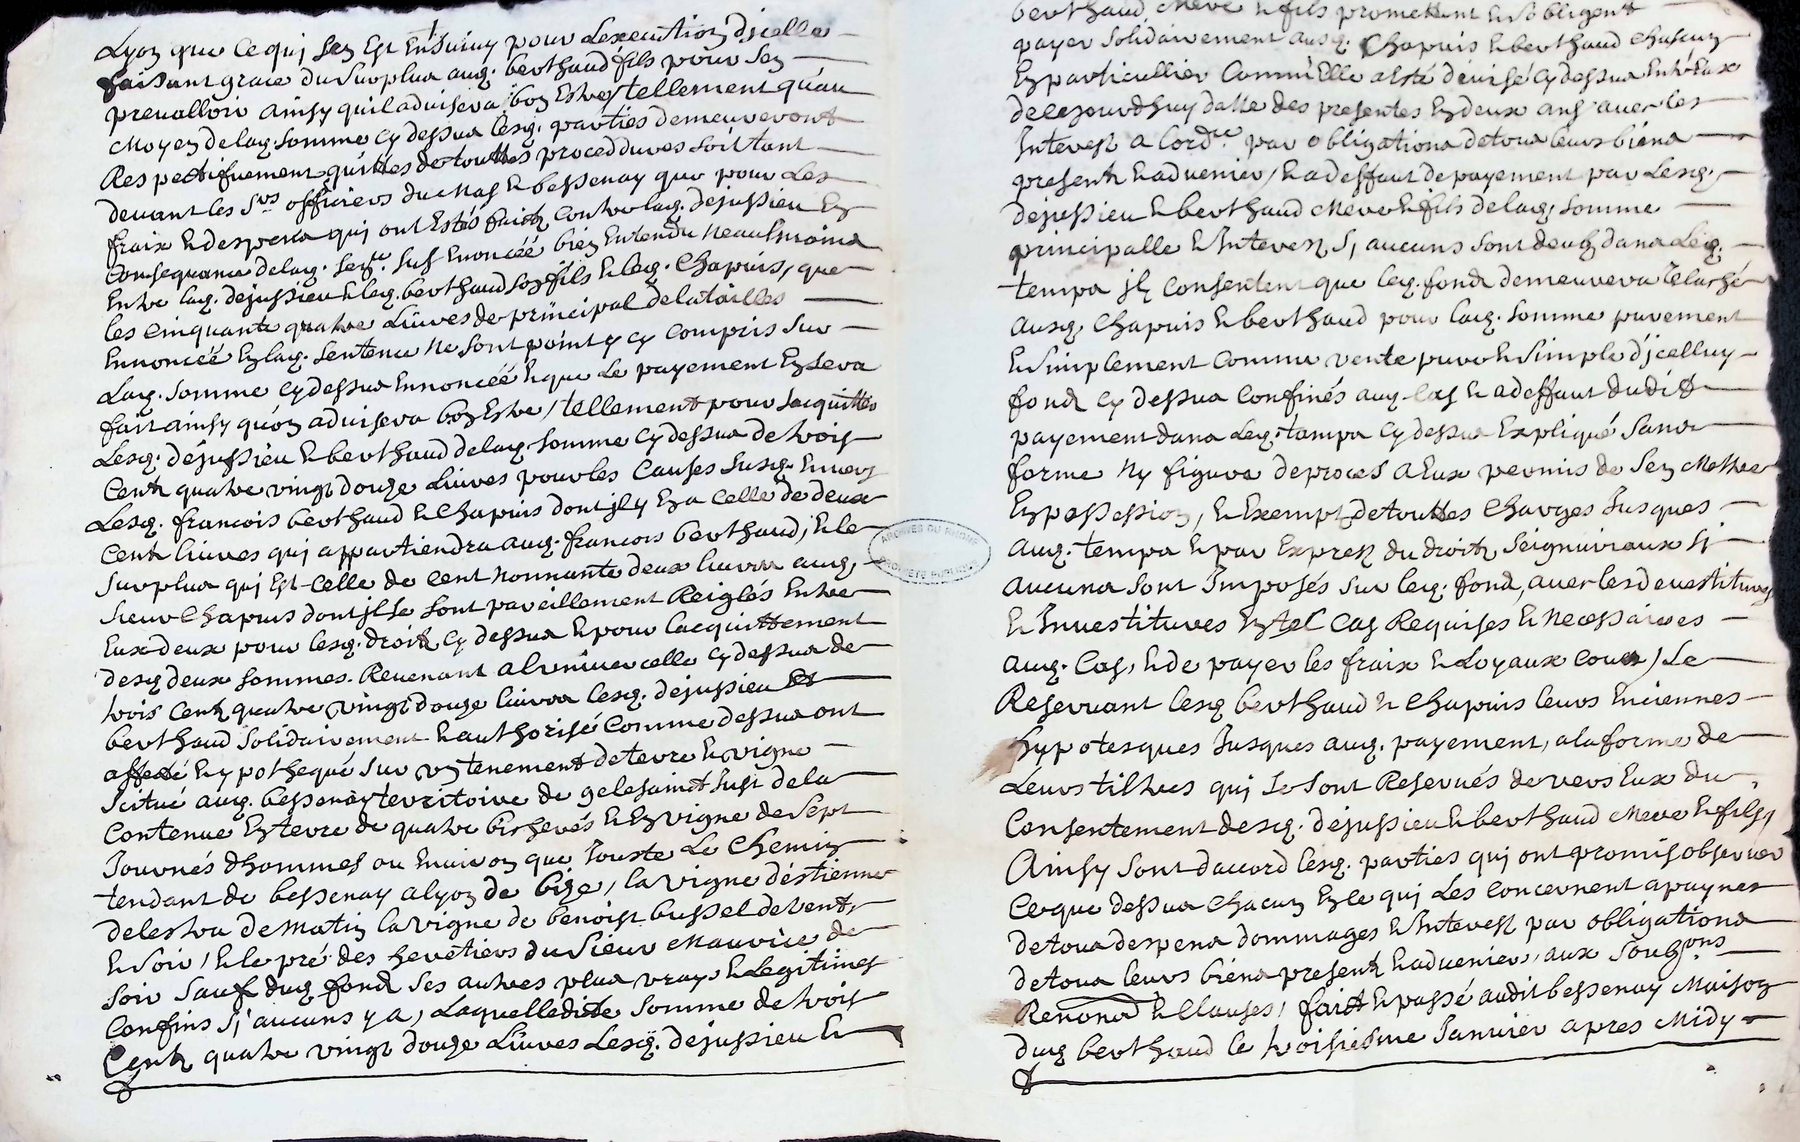 Lyon que ce quj sen Est Ensuiuy pour Lexecution djcelle
faisant grace du surplus aud. berthaud fils pour sen
preualloir ainsy quil aduisera bon Estre / tellement quau
Moyen de lad. somme cy dessus lesd. parties demeureront
Respectifuement quittes de touttes proceddures soit tant
deuant les Srs officiers du Mas & bessenay que pour Les
fraix & despens quj ont Estés faicts contre lad. dejussieu En
Consequance de lad. sentce sus Enoncéé bien Entendu Neaulmoins
Entre lad. dejussieu & led. berthaud son fils & led. Chapuis, que
les cinquante quatre Liures de principal de la tailles
Ennoncéé En lad. sentence Ne sont point y cy compris sur
Lad. somme cy dessus Ennoncéé & que Le payement En sera
fait ainsy quon aduisera bon Estre / tellement pour sacquitter
Lesd. dejussieu & berthaud de lad. somme cy dessus de trois
Cents quatre vingt douze Liures pour les Causes susd. Enuers
Lesd. francois berthaud & Chapuis dont jl y En a celle de deux
cents liures quj appartiendra aud. francois berthaud, & le
surplus quj Est celle de cent nonnante deux liures aud.
sieur Chapuis dont jls se sont pareillement Reiglés Entre
Eux deux pour lesd. droits cy dessus & pour lacquittement
desd deux sommes. Reuenant a celle cy dessus de
trois cents quatre vingt douze liures lesd. dejussieu &
berthaud solidairement & authorisé comme dessus ont
affecté hypothequé sur un tenement de terre & vigne
scitué aud. bessenay territoire de gelesainct just de la
Contenue En terre de quatre bicherés & En vigne de sept
Journés dhommes ou Enuiron que Jouste Le Chemin
tendant de bessenay a lyon de bize, la vigne destienne
delestra de Matin la vigne de benoist bussel de vent
& soir / & le pré des heretiers du sieur Mauvice de
soir sauf dud. fond ses autres plus vrays & Legitimes
Confins sj aucuns y a, Laquelle dite somme de trois
Cents quatre vingt douze Liures Lesd. dejussieu &
berthaud Mere & fils promettent & sobligent
payer solidairement ausd. Chapuis & berthaud chascun
En particullier Comm'Elle a Esté deuisé cy dessus Entr'Eux
de cejourdhuy datte des presentes En deux ans auec les
Interest a Lordre par obligations de tous leurs biens
presents & aduenier, & a deffaut de payement par Lesd.
dejussieu & berthaud Mere & fils de lad. somme
principalle & Interest sj aucuns sont deubs dans Led.
temps jls consentent que led. fond demeurera Relaché
Ausd. Chapuis & berthaud pour lad. somme purement
& simplement comme vente pure & simple d'jcelluy
fond cy dessus Confinés aud. cas & a deffaut dudit
payement dans Led. tamps cy dessus Expliqué sans
forme Ny figure de proces a Eux permis de sen Mettre
En possession, & Exempt de touttes Charges Jusques
aud. temps & par Expres du droits seignuriaux sj
aucuns sont Jmposés sur led. fond, auec les deuestitures
& Inuestitures En tel Cas Requises & Necessaires
aud. Cas, & de payer les fraix & Loyaux cous / Se
Reseruant lesd berthaud & Chapuis leurs Enciennes
hypotesques Jusques aud. payement, a la forme de
Leurs tiltres quj se sont Reserués devers Eux du
Consentement desd. dejussieu & berthaud Mere & fils,
Ainsy sont daccord lesd. parties quj ont promis obseruer
Ce que dessus chacun En ce quj Les concernent a paynes
de tous despens dommages & Interest par obligations
de tous leurs biens presents & aduenier, aux soubons
Renond & Clauses / fait & passé audit bessenay Maison
dud berthaud le troisiesme Janvier apres Midy
ARCHIVES DU RHONE
PROPRIÉTÉ PUBLIQUE